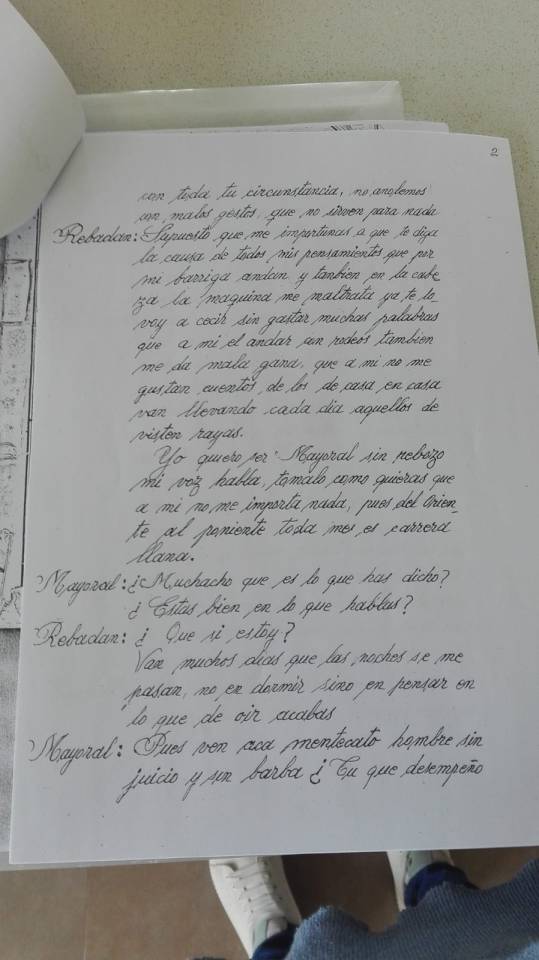 2
con toda tu circunstancia, no andemos
con malos gestos, que no sirven para nada
Rebadan: Supuesto que me importunas a que te diga
la causa de todos mis pensamientos que por
mi barriga andan y tanbien en la cabe
za la maquina me maltrata ya te lo
voy a decir sin gastar muchas palabras
que a mi el andar con rodeos tambien
me da mala gana, que a mi no me
gustan cuentos de los de casa en casa
van llevando cada dia aquellos de
visten rayas.
Yo quiero ser Mayoral sin rebozo
mi voz habla, tomalo como quieras que
a mi no me importa nada, pues del Orien_
te al poniente toda me es carrera
llana.
Mayoral: ¿Muchacho que es lo que has dicho?
¿Estas bien en lo que hablas?
Rebadan: ¿Que si estoy?
Van muchos dias que las noches se me
pasan, no en dormir sino en pensar en
lo que de oir acabas
Mayoral: Pues ven aca mentecato hombre sin
juicio y sin barba ¿Tu que desempeño